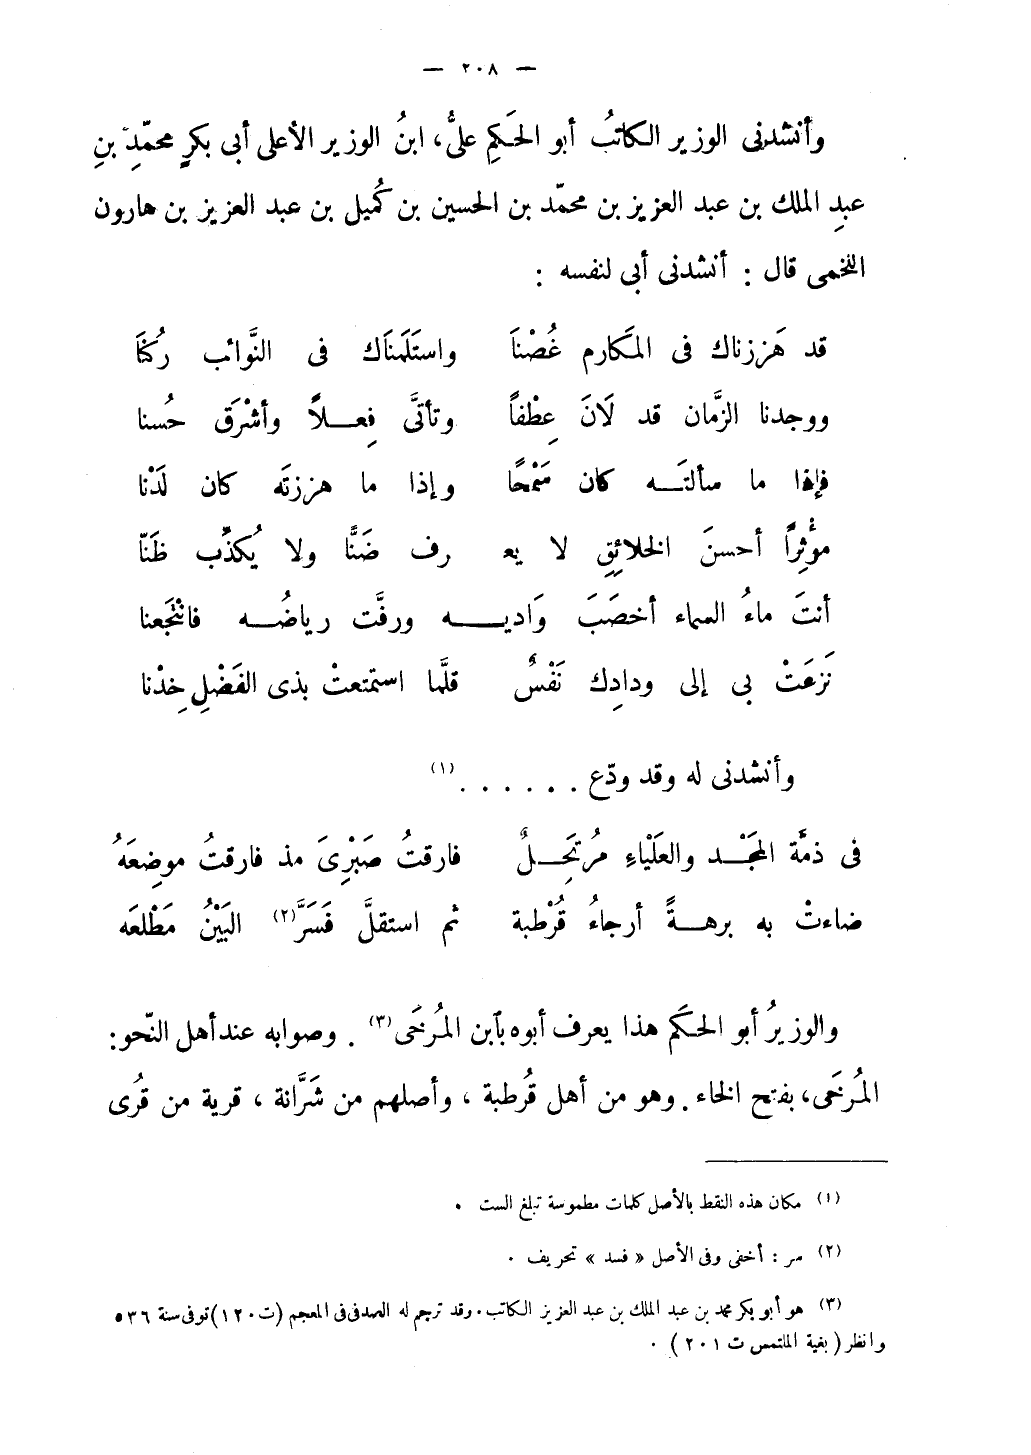 — ٢٠٨ —
وأنشدنى الوزير الكاتبُ أبو الحَكَمِ علىٌّ، ابنُ الوزير الأعلى أبى بكرٍ محمّدِ بنِ
عبدِ الملك بن عبد العزيز بن محمّد بن الحسين بن كُميل بن عبد العزيز بن هارون
اللخمى قال : أنشدنى أبى لنفسه :
قد هَززناك فى المكارم غُصْنَا واستَلَمنَاك فى النَّوائب رُكنَا
ووجدنا الزَّمان قد لَانَ عِطْفاً وتأتَّى فِعـلاً وأشْرَق حُسنا
فإذا ما سألتَـه كان سَمْحًا وإذا ما هززتَه كان لَدْنا
مؤْثِراً أحسنَ الخلائقِ لا يعـ رف ضَنًّا ولا يُكذِّب ظَنّا
أنتَ ماءُ السماء أخصَبَ وَاديـــه ورفَّت رياضُــه فانْتَجَعنا
نَزعَتْ بى إلى ودادِك نَفْسٌ قلَّما استمتعتْ بذى الفَضْلِ خِدْنا
وأنشدنى له وقد ودّع . . . . . . (١)
فى ذمَّة المَجْـد والعَلْياءِ مُرتَحِـلٌ فارقتُ صَبْرِىَ مذ فارقتُ موضِعَهُ
ضاءتْ به برهـةً أرجاءُ قُرْطبة ثم استقلَّ فَسَرَّ(٢) البَيْنُ مَطْلعَه
والوزيرُ أبو الحكَم هذا يعرف أبوه بٱبن المُرخَى(٣) . وصوابه عند أهل النّحو:
المُرخَى، بفتح الخاء . وهو من أهل قُرطبة ، وأصلهم من شَرَّانة ، قرية من قُرى
(١) مكان هذه النقط بالأصل كلمات مطموسة تبلغ الست .
(٢) سر : أخفى وفى الأصل « فسد » تحريف .
(٣) هو أبو بكر محمد بن عبد الملك بن عبد العزيز الكاتب . وقد ترجم له الصدفى فى المعجم (ت ١٢٠) توفى سنة ٥٣٦
وانظر ( بغية الملتمس ت ٢٠١ ) .